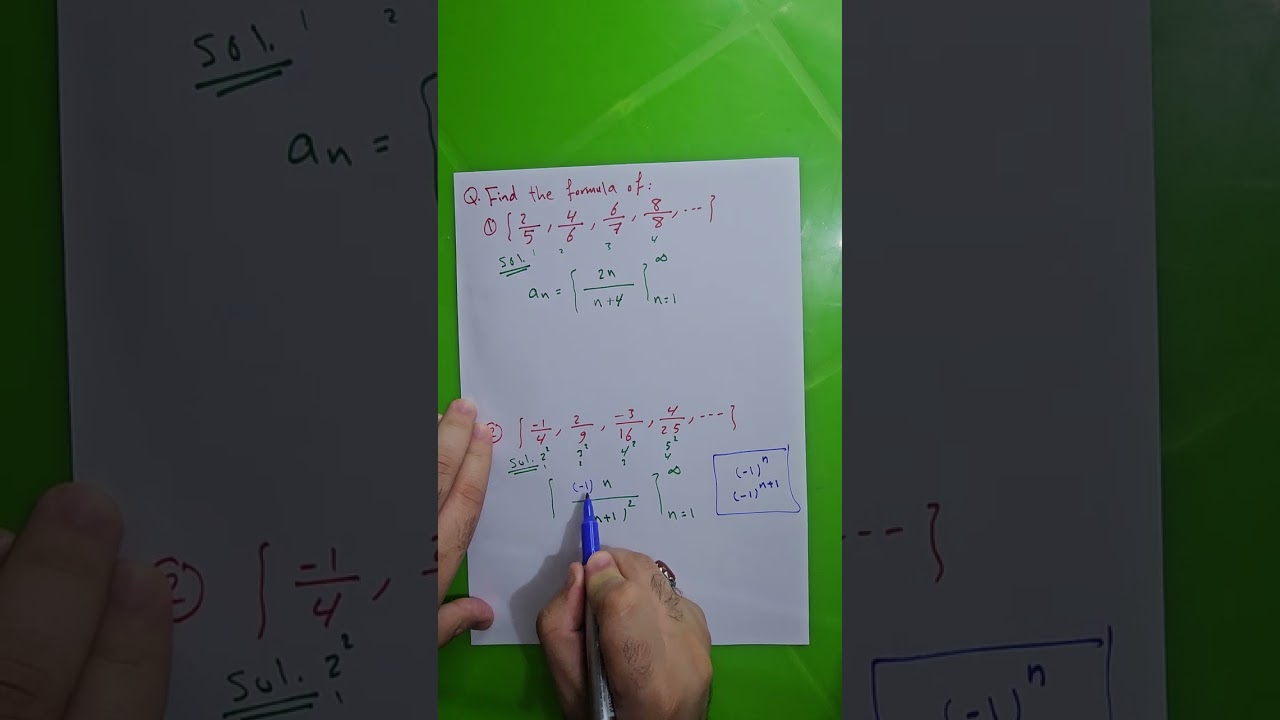 Q. Find the formula of:
① { 2/5 , 4/6 , 6/7 , 8/8 , ... }
Sol. 1 2 3 4
aₙ = { 2n / n+4 }^∞_{n=1}
② { -1/4 , 2/9 , -3/16 , 4/25 , ---- }
Sol. 2² 3² 4² 5²
1 2 3 4
{ (-1) n / n+1)² }^∞_{n=1}
(-1)ⁿ
(-1)ⁿ⁺¹